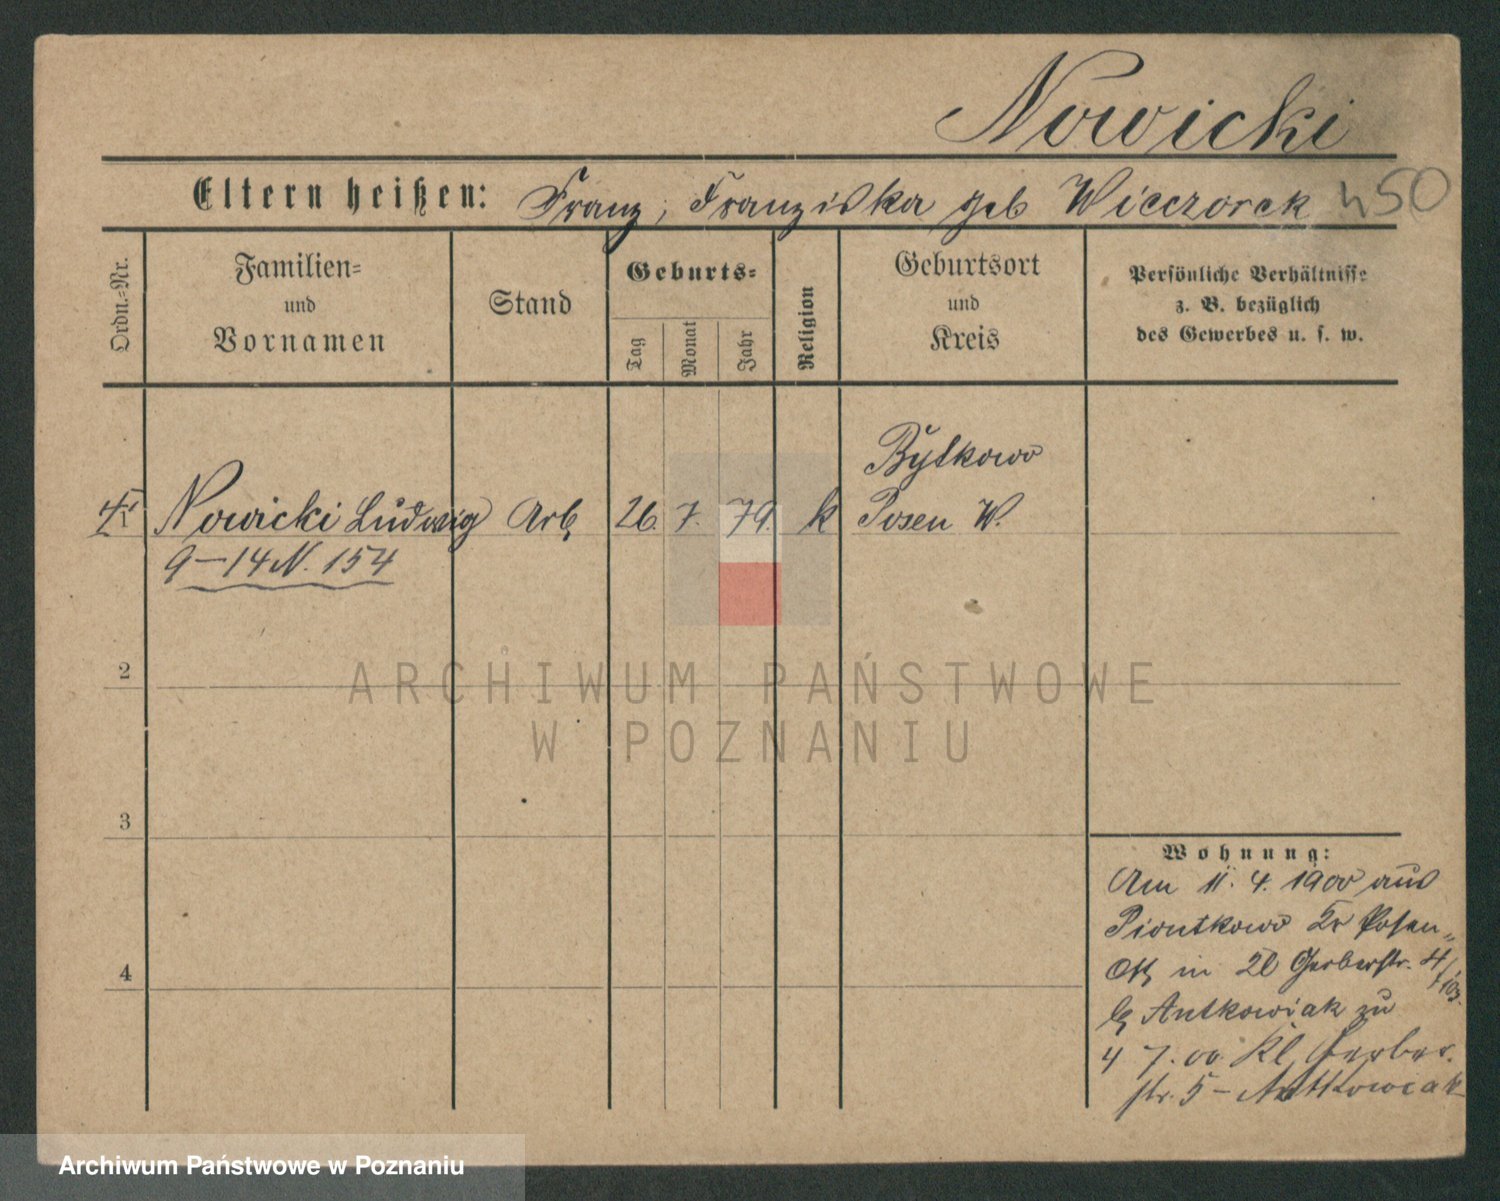 Nowicki
Eltern heißen: Franz, Franziska geb Wieczorek
450
Ordn.=Nr.
Familien=
und
Vornamen
Stand
Geburts=
Tag
Monat
Jahr
Religion
Geburtsort
und
Kreis
Persönliche Verhältnisse
z. B. bezüglich
des Gewerbes u. s. w.
Nowicki Ludwig Arb 26. 7. 79. k Bytkowo
Posen W.
9—14 N. 154
2
3
4
Wohnung:
Am 11. 4. 1900 aus
Piontkowo Kr Posen
in 20 Gerberstr. 4
b Antkowiak zu
4 7. 00 Kl. Gerber
str. 5 – Antkowiak
ARCHIWUM PAŃSTWOWE
W POZNANIU
Archiwum Państwowe w Poznaniu